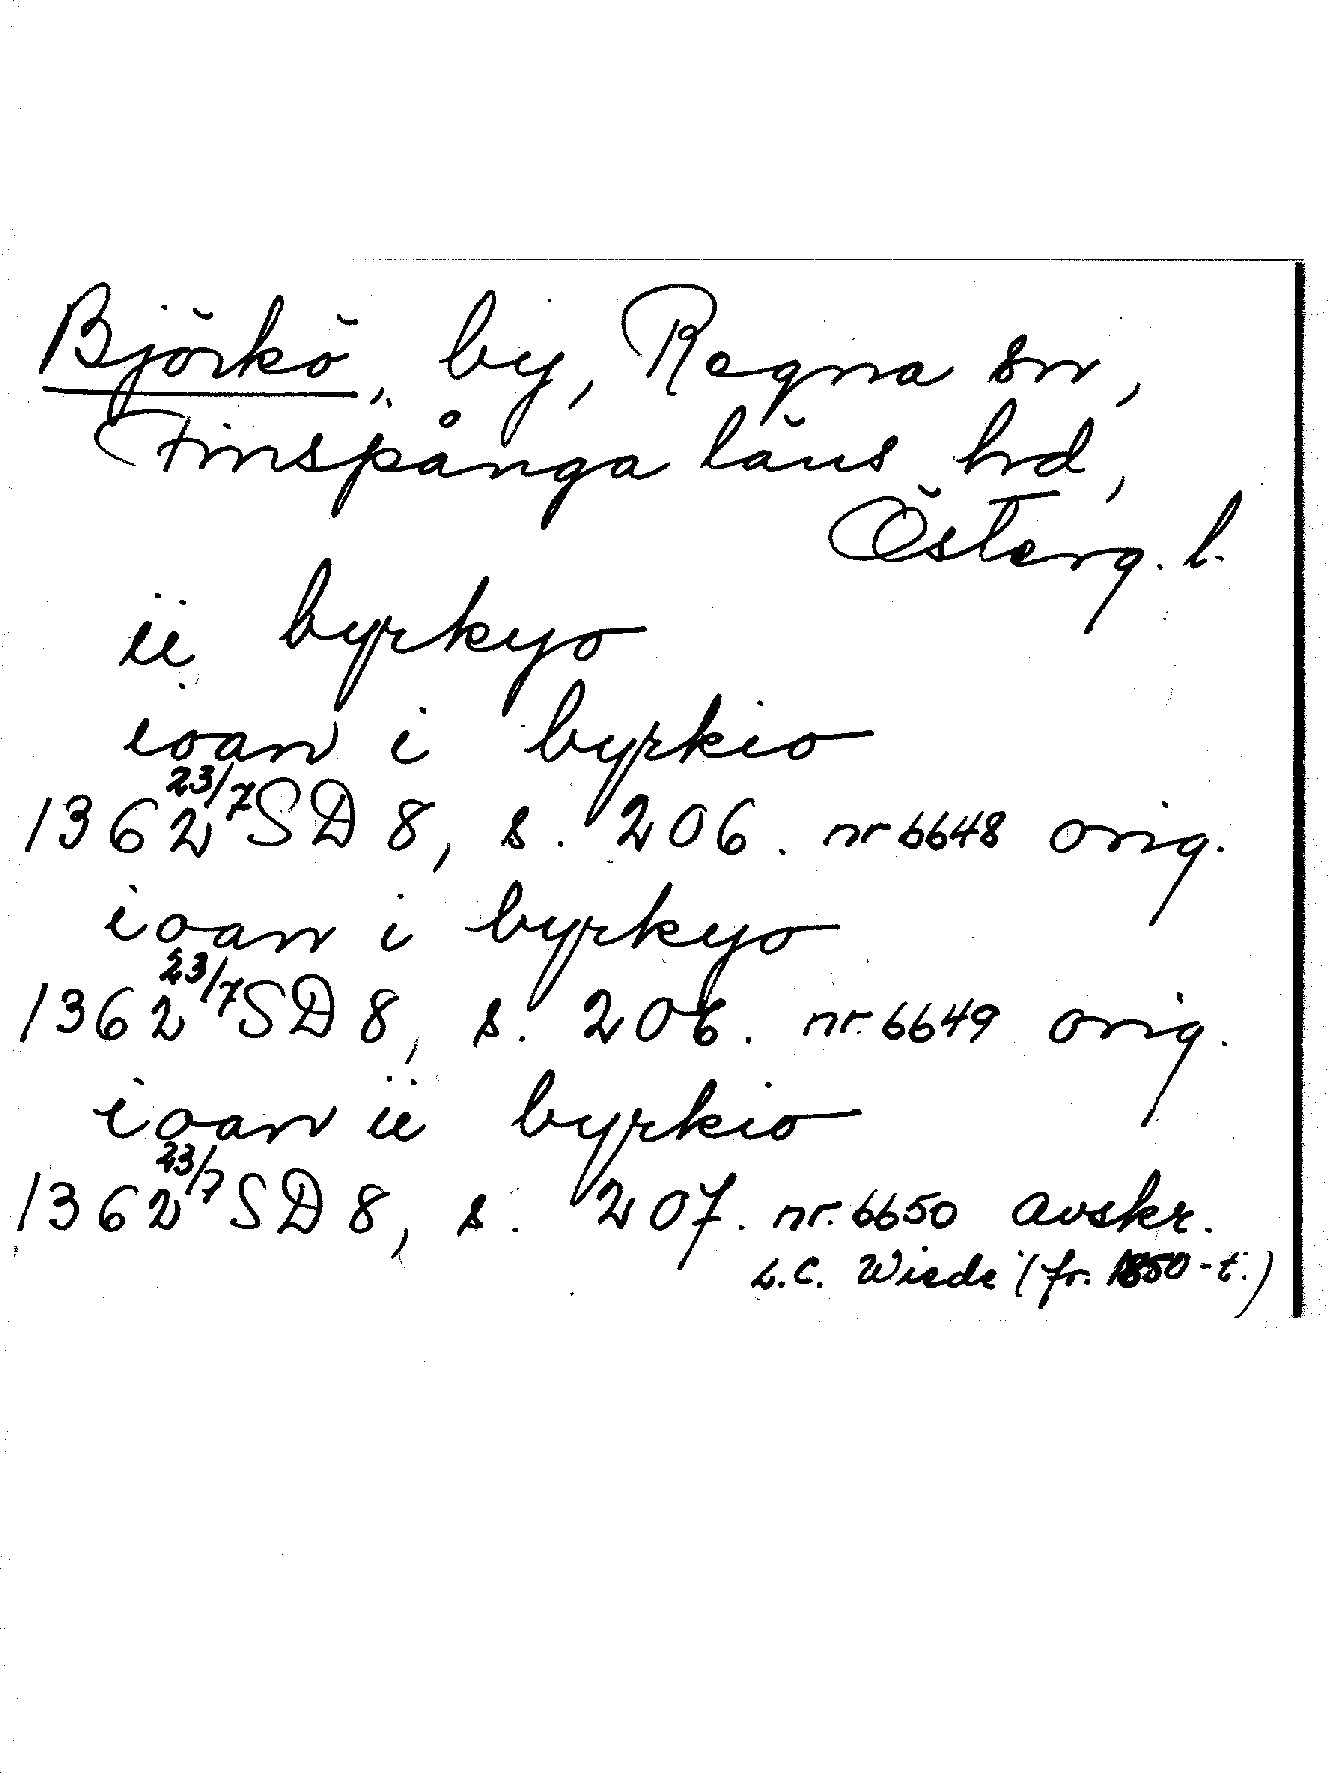 Björkö, by, Regna sn,
Finspånga läns hd,
Österg. l.
ii byrkyo
ioan i byrkio
1362 23/7 SD 8, s. 206. nr 6648 orig.
ioan i byrkyo
1362 23/7 SD 8, s. 206. nr. 6649 orig.
ioan ii byrkio
1362 23/7 SD 8, s. 207. nr. 6650 avskr.
L.C. Wiede (fr. 1850-t.)